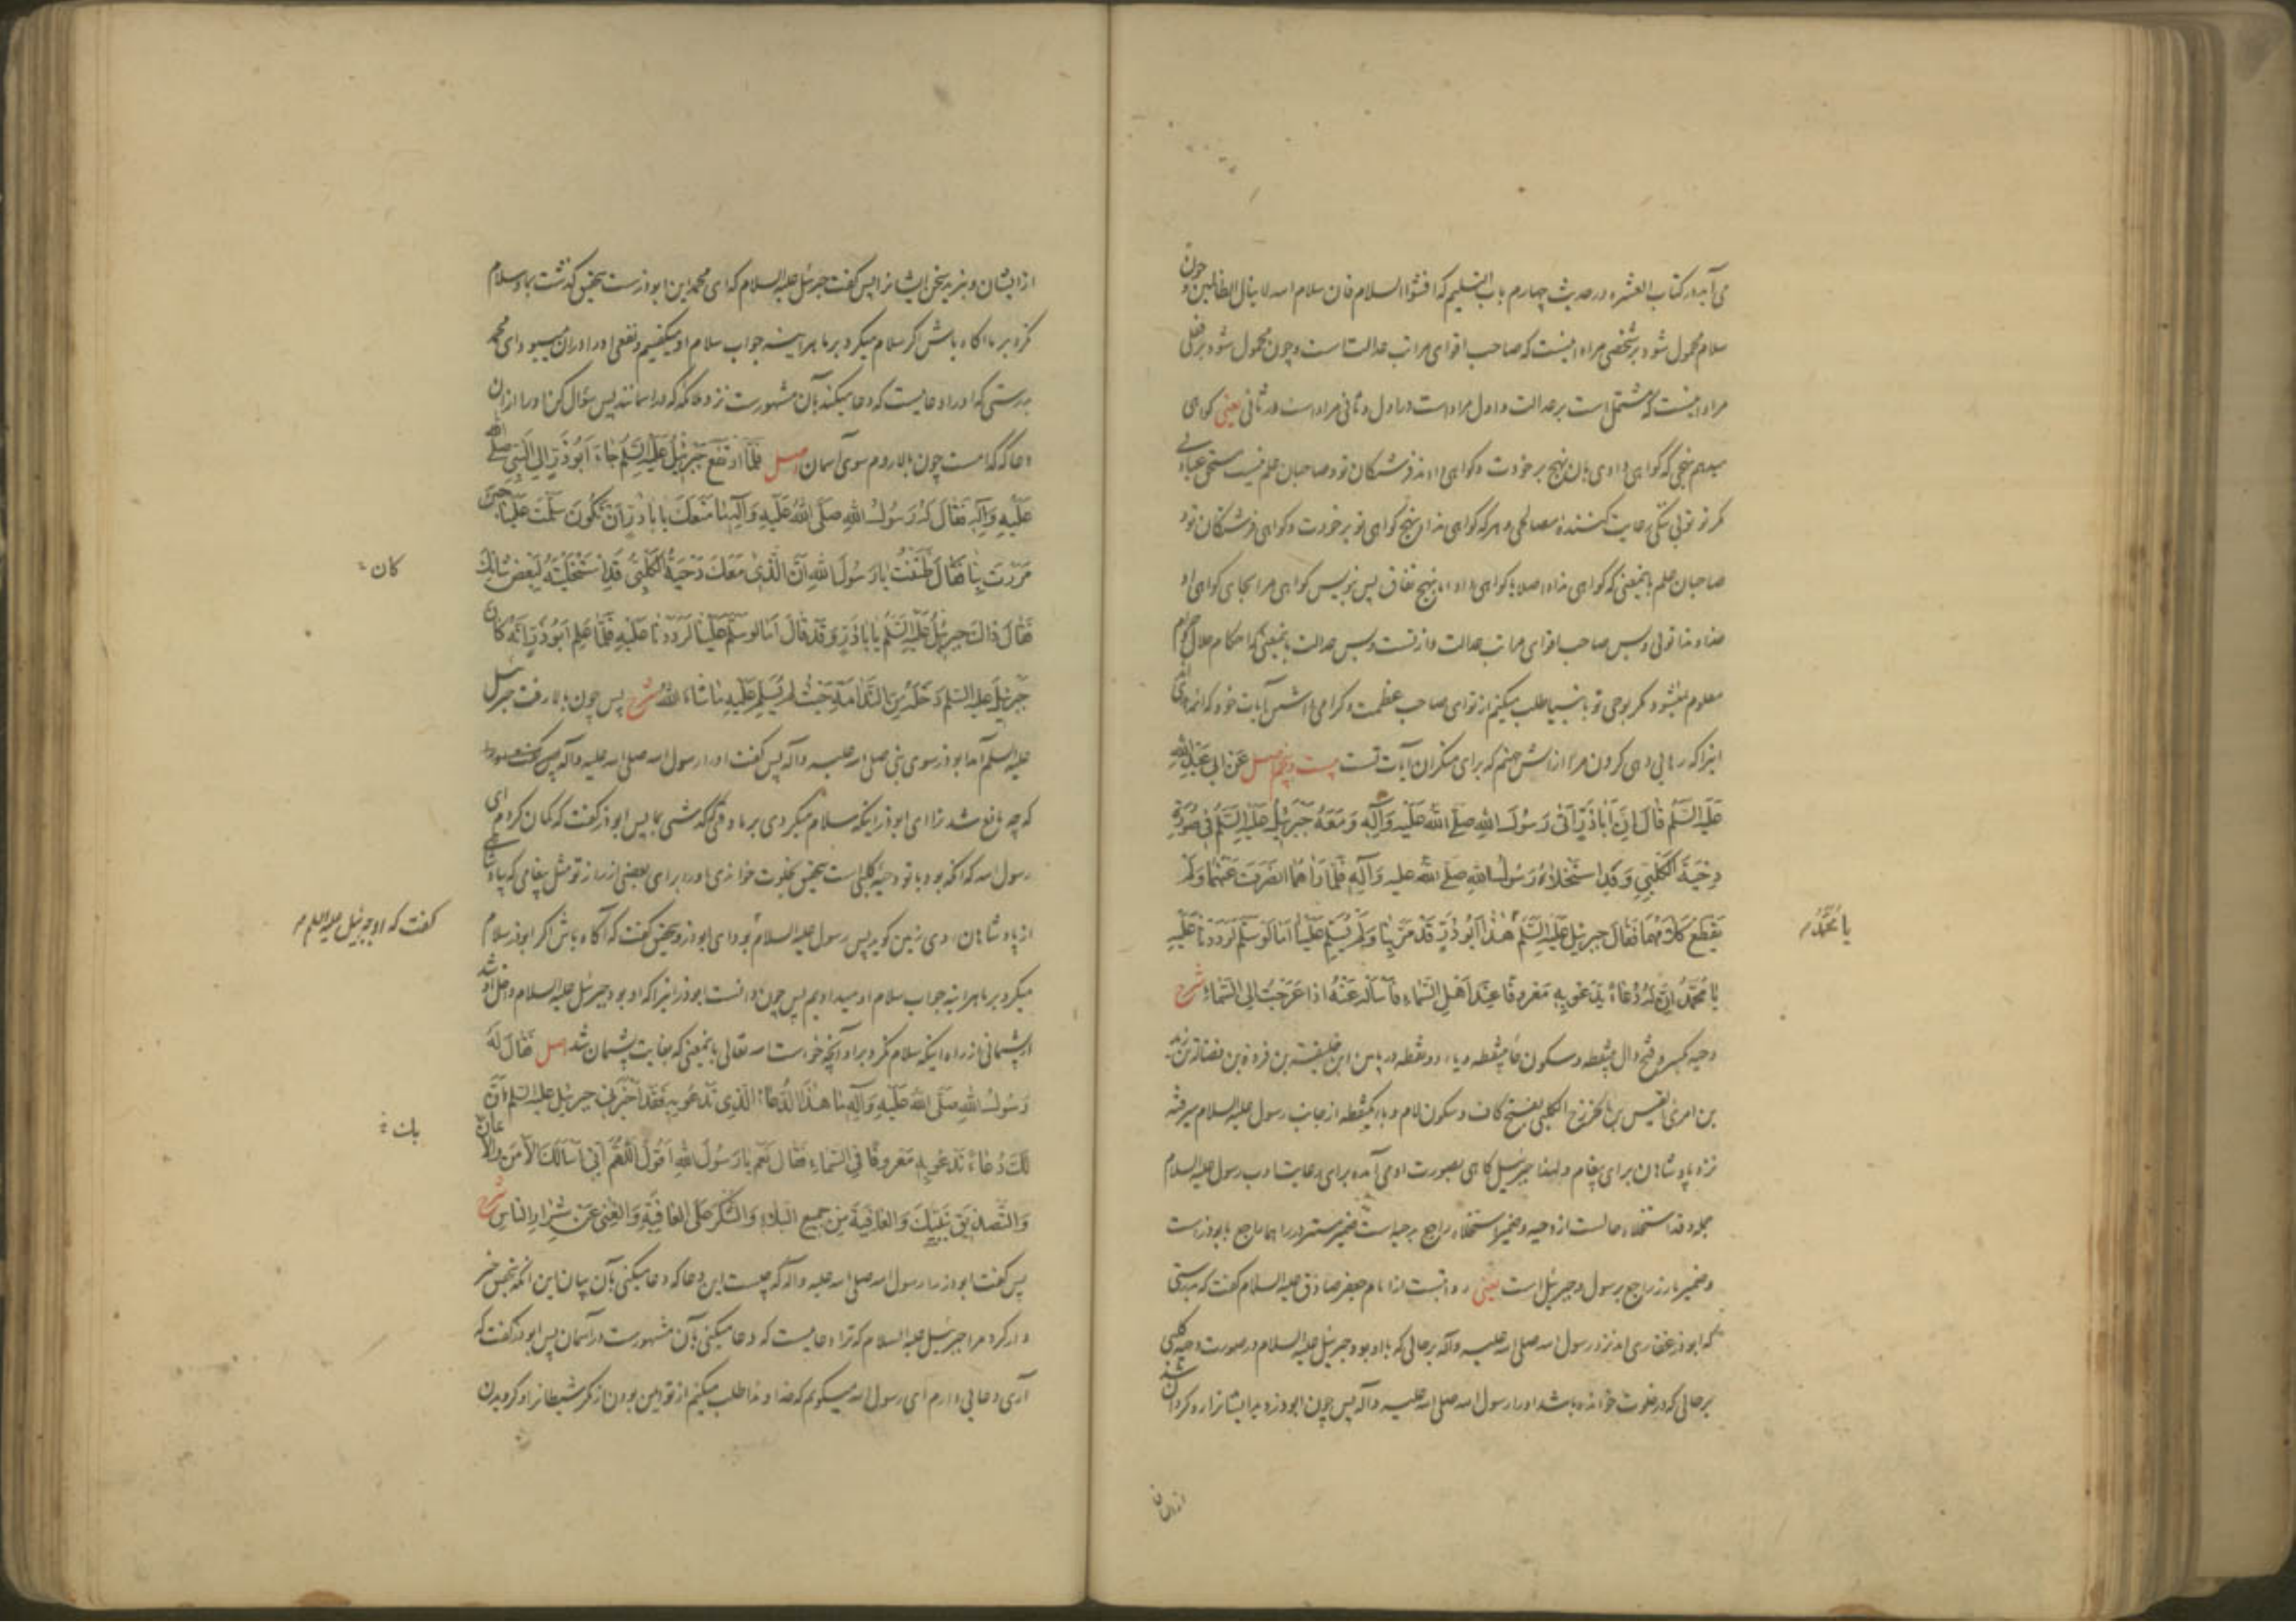 می‌آید در کتاب العشره در حدیث چهارم باب التسلیم که افشوا السلام فان سلام الله لا ینال الظالمین و چون
سلام محمول شود بر شخصی مراد اینست که صاحب اقوای مراتب عدالتست و چون محمول شود بر فعلی
مراد اینست که مشتمل است بر عدالت و اول مراد است در اول و ثانی مراد است در ثانی یعنی گواهی
میدهم نهجی که گواهی دادی بآن نهج بر خودت و گواهی دادند فرشتگان تو و صاحبان علم نیست مستحق عبادتی
مگر تو تویی رعایت کنندهٔ مصالحی و هر که گواهی نداد بنهج گواهی تو بر خودت و گواهی فرشتگان تو و
صاحبان علم بایمعنی که گواهی نداد اصلا یا گواهی داد اما بنهج نفاق پس بنویس گواهی مرا بجای گواهی او
خداوندا تویی و بس صاحب اقوای مراتب عدالت و از تست و بس عدالت بایمعنی که احکام حلال و حرام
معلوم نمیشود مگر بوحی تو بانبیا طلب میکنم از تو ای صاحب عظمت و گرامی داشتن آیات خود
اینرا که رهایی دهی گردن مرا از آتش جهنم که برای منکران آیات تست بیست و پنجم اصل عَنْ اَبی عَبْدِ اللّٰهِ
عَلَیْهِ السَّلَمُ قَالَ اِنَّ اَبَاذَرٍّ اَتٰی رَسُولَ اللهِ صَلَّی اللهُ عَلَیْهِ وَآلِهِ وَمَعَهُ جَبْرَئِیلُ عَلَیْهِ السَّلَمُ فِی صُورَةِ
دِحْیَةَ الْکَلْبِیِّ وَقَدِ اسْتَخْلَاهُ رَسُولُ اللهِ صَلَّی الله علیه وَآلِهِ فَلَمَّا رَاٰهُمَا انْصَرَفَ عَنْهُمَا وَلَمْ
یَقْطَعْ کَلَامَهُمَا فَقَالَ جبرئیلُ عَلَیْهِ السَّلَمُ هٰذَا اَبُوذَرٍّ قَدْ مَرَّ بِنَا وَلَمْ یُسَلِّمْ عَلَیْنَا اَمَا لَوْ سَلَّمَ لَرَدَدْنَا عَلَیْهِ
یا مُحَمَّدُ م
یَا مُحَمَّدُ اِنَّ لَهُ دُعَاءً یَدْعُو بِهِ مَعْرُوفًا عِنْدَ اَهْلِ السَّمَاءِ فَاسْاَلْهُ عَنْهُ اِذَا عَرَجْتُ اِلَی السَّمَاءِ شرح
دحیه بکسر و فتح دال بینقطه و سکون حاء بینقطه و یاء دو نقطه در پایین ابن خلیفة بن فروة بن فضالة بن زید
بن امرئ القیس بن الخزرج الکلبی بفتح کاف و سکون لام و باء یکنقطه از جانب رسول علیه السلام میرفته
نزد پادشاهان برای پیغام و لهذا جبرئیل گاهی بصورت او می‌آمده برای رعایت ادب رسول علیه السلام
جملهٔ وقد استخلاه حالست از دحیه و ضمیر استخلاه راجع بدحیه است ضمیر مستتر در راهما راجع بابوذر است
و ضمیر بارز راجع برسول و جبرئیل است یعنی روایتست از امام جعفر صادق علیه السلام گفت که بدرستی
که ابوذر غفاری آمد نزد رسول الله صلی الله علیه وآله بر حالی که با او بود جبرئیل علیه السلام در صورت دحیه کلبی
بر حالی که در خلوت خوانده باشد او را رسول الله صلی الله علیه وآله پس چون ابوذر دید ایشانرا رو گردان شد
از ایشان
از ایشان و نبرید سخن ایشانرا پس گفت جبرئیل علیه السلام که ای محمد این ابوذر است بتحقیق گذشت بما و سلام
نکرد بر ما آگاه باش اگر سلام میکرد بر ما هر آینه جواب سلام او میگفتیم و نفعی او را در آن میبود ای محمد
بدرستی که او را دعاییست که دعا میکند بآن مشهورست نزد ملائکه که در آسمانند پس سؤال کن او را از آن
دعا که کدامست چون بالا روم سوی آسمان اصل فَلَمَّا ارْتَفَعَ جَبْرَئِیلُ عَلَیْهِ السَّلَمُ جَاءَ اَبُوذَرٍّ اِلَی النَّبِیِّ صلی الله
عَلَیْهِ وَآلِهِ فَقَالَ لَهُ رَسُولُ اللهِ صَلَّی اللهُ عَلَیْهِ وَآلِهِ مَا مَنَعَکَ یَا بَاذَرٍّ اَنْ تَکُونَ سَلَّمْتَ عَلَیْنَا حِینَ
مَرَرْتَ بِنَا فَقَالَ ظَنَنْتُ یَا رَسُولَ اللهِ اَنَّ الَّذِی مَعَکَ دَحْیَةُ الْکَلْبِیُّ قَدِ اسْتَخْلَیْتَهُ لِبَعْضِ شَانِکَ
کان
فَقَالَ ذَاکَ جَبْرَئِیلُ عَلَیْهِ السَّلَمُ یَا بَاذَرٍّ وَقَدْ قَالَ اَمَا لَوْ سَلَّمَ عَلَیْنَا لَرَدَدْنَا عَلَیْهِ فَلَمَّا عَلِمَ اَبُوذَرٍّ اَنَّهُ کَانَ
جَبْرَئِیلَ عَلَیْهِ السَّلَمُ دَخَلَهُ مِنَ النَّدَامَةِ حَیْثُ لَمْ یُسَلِّمْ عَلَیْهِ مَا شَاءَ اللهُ شرح پس چون بالا رفت جبرئیل
علیه السلم آمد ابوذر سوی نبی صلی الله علیه وآله پس گفت او را رسول الله صلی الله علیه وآله
که چه مانع شد ترا ای ابوذر اینکه سلام میکردی بر ما وقتی که گذشتی بما پس ابوذر گفت که گمان کردم ای
رسول الله که آنکه بود با تو دحیهٔ کلبی است بتحقیق بخلوت خواندی او را برای بعضی از راز تو مثل پیغامی که بپادشاهی
از پادشاهان روی زمین گوید پس رسول علیه السلام بود ای ابوذر و بتحقیق گفت که آگاه باش اگر ابوذر سلام
گفت که او جبرئیل علیه السلم م
میکرد بر ما هر آینه جواب سلام او میدادیم پس چون دانست ابوذر اینرا که او بود جبرئیل علیه السلام داخل او شد
از پشیمانی از راه اینکه سلام نکرد بر او آنچه خواست الله تعالی بایمعنی که بغایت پشیمان شد اصل فَقَالَ لَهُ
رَسُولُ اللهِ صَلَّی اللهُ عَلَیْهِ وَآلِهِ مَا هٰذَا الدُّعَاءُ الَّذِی تَدْعُو بِهِ فَقَدْ اَخْبَرَنِی جبرئیل علیه السلم اَنَّ
لَکَ دُعَاءً تَدْعُو بِهِ مَعْرُوفًا فِی السَّمَاءِ فَقَالَ نَعَمْ یَا رَسُولَ اللهِ اَقُولُ اللّٰهُمَّ اِنِّی اَسْاَلُکَ الْاَمْنَ وَالْاِیمَانَ
بک
وَالتَّصْدِیقَ بِنَبِیِّکَ وَالْعَافِیَةَ مِنْ جَمِیعِ الْبَلَاءِ وَالشُّکْرَ عَلَی الْعَافِیَةِ وَالْغِنٰی عَنْ شِرَارِ النَّاسِ شرح
پس گفت ابوذر را رسول الله صلی الله علیه وآله که چیست این دعا که دعا میکنی بآن بیان این آنکه بتحقیق خبر
دار کرد مرا جبرئیل علیه السلام که ترا دعاییست که دعا میکنی بآن مشهورست در آسمان پس ابوذر گفت که
آری دعایی دارم ای رسول الله میگویم که خداوندا طلب میکنم از تو ایمن بودن از مکر شیطانرا و گرویدن